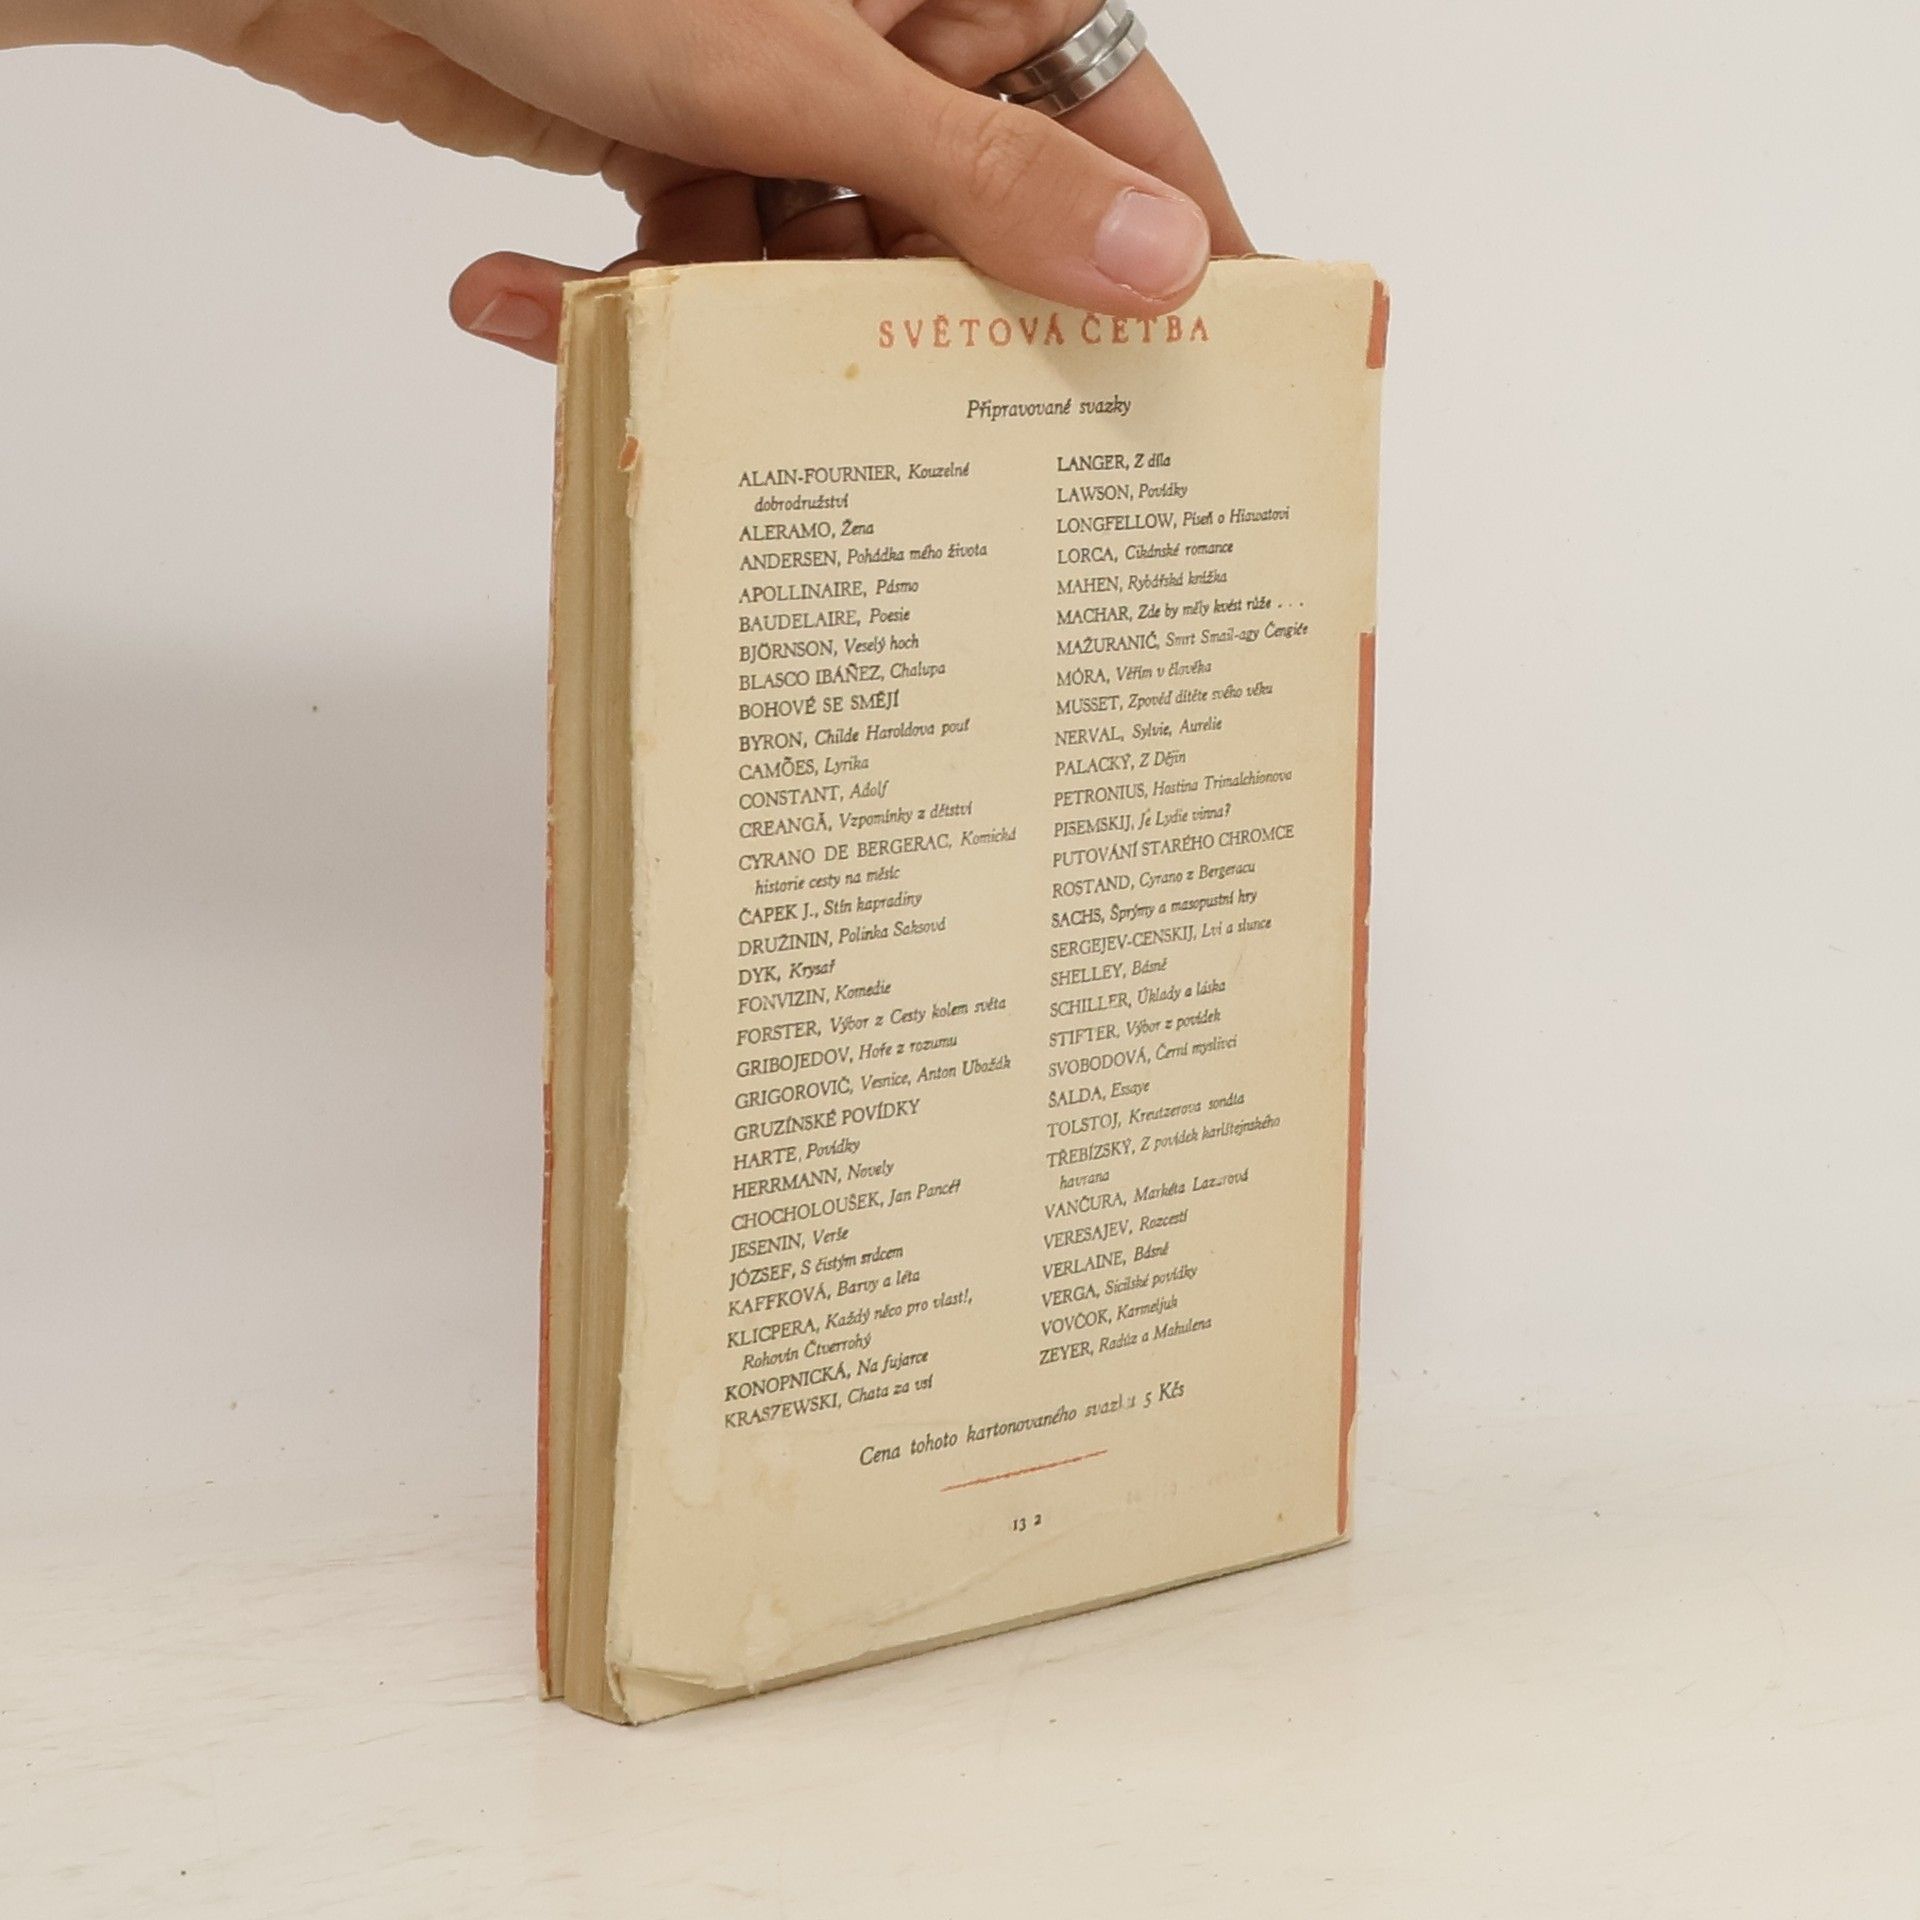 SVĚTOVÁ ČETBA
Připravované svazky
ALAIN-FOURNIER, Kouzelné
dobrodružství
ALERAMO, Žena
ANDERSEN, Pohádka mého života
APOLLINAIRE, Pásmo
BAUDELAIRE, Poesie
BJÖRNSON, Veselý hoch
BLASCO IBÁÑEZ, Chalupa
BOHOVÉ SE SMĚJÍ
BYRON, Childe Haroldova pouť
CAMÕES, Lyrika
CONSTANT, Adolf
CREANGĂ, Vzpomínky z dětství
CYRANO DE BERGERAC, Komická
historie cesty na měsíc
ČAPEK J., Stín kapradiny
DRUŽININ, Polinka Saksová
DYK, Krysař
FONVIZIN, Komedie
FORSTER, Výbor z Cesty kolem světa
GRIBOJEDOV, Hoře z rozumu
GRIGOROVIČ, Vesnice, Anton Ubožák
GRUZÍNSKÉ POVÍDKY
HARTE, Povídky
HERRMANN, Novely
CHOCHOLOUŠEK, Jan Pancéř
JESENIN, Verše
JÓZSEF, S čistým srdcem
KAFFKOVÁ, Barvy a léta
KLICPERA, Každý něco pro vlast!,
Rohovín Čtverrohý
KONOPNICKÁ, Na fujarce
KRASZEWSKI, Chata za vsí
LANGER, Z díla
LAWSON, Povídky
LONGFELLOW, Píseň o Hiawatovi
LORCA, Cikánské romance
MAHEN, Rybářská knížka
MACHAR, Zde by měly kvést růže . . .
MAŽURANIĆ, Smrt Smail-agy Čengiće
MÓRA, Věřím v člověka
MUSSET, Zpověď dítěte svého věku
NERVAL, Sylvie, Aurelie
PALACKÝ, Z Dějin
PETRONIUS, Hostina Trimalchionova
PISEMSKIJ, Je Lydie vinna?
PUTOVÁNÍ STARÉHO CHROMCE
ROSTAND, Cyrano z Bergeracu
SACHS, Šprýmy a masopustní hry
SERGEJEV-CENSKIJ, Lvi a slunce
SHELLEY, Básně
SCHILLER, Úklady a láska
STIFTER, Výbor z povídek
SVOBODOVÁ, Černí myslivci
ŠALDA, Essaye
TOLSTOJ, Kreutzerova sonáta
TŘEBÍZSKÝ, Z povídek karlštejnského
havrana
VANČURA, Markéta Lazarová
VERESAJEV, Rozcestí
VERLAINE, Básně
VERGA, Sicilské povídky
VOVČOK, Karmeljuk
ZEYER, Radúz a Mahulena
Cena tohoto kartonovaného svazku 5 Kčs
13 2